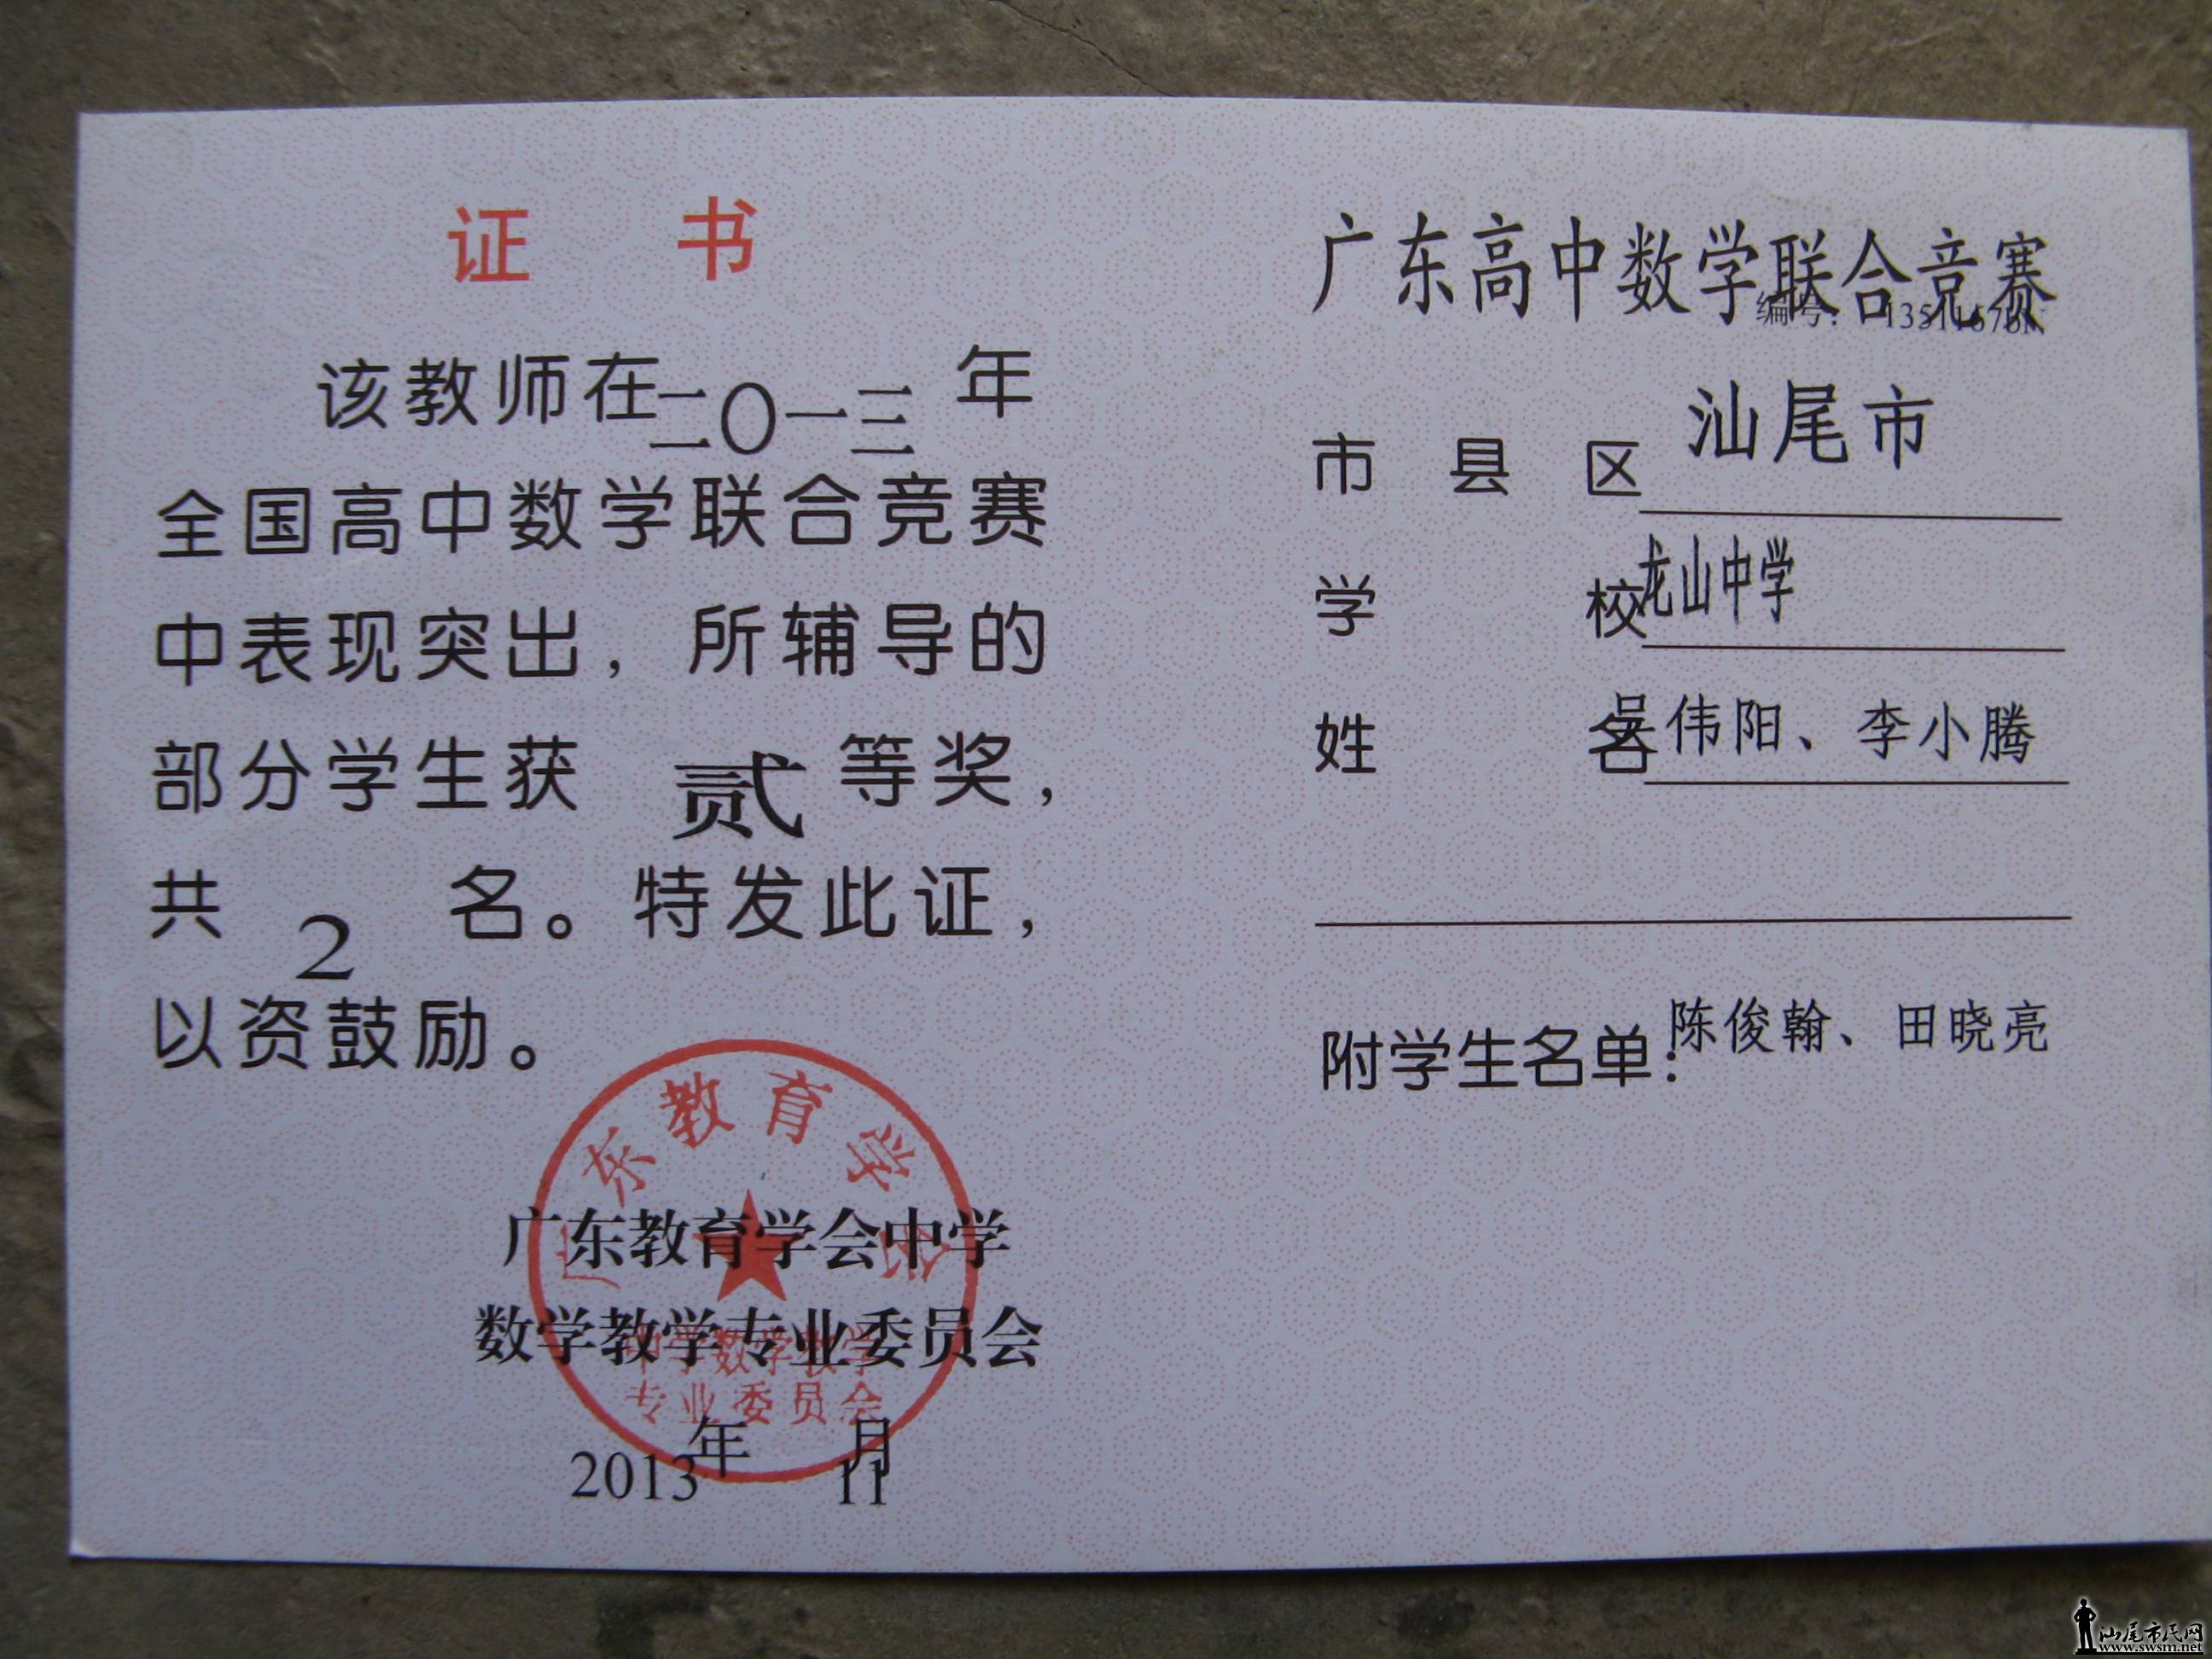 证 书
该教师在二〇一三年
全国高中数学联合竞赛
中表现突出，所辅导的
部分学生获 贰 等奖，
共 2 名。特发此证，
以资鼓励。
广东教育学会
广东教育学会中学
数学教学专业委员会
中学数学教学
专业委员会
2013年11月
广东高中数学联合竞赛
编号：
市 县 区 汕尾市
学 校 龙山中学
姓 名 吴伟阳、李小腾
附学生名单：陈俊翰、田晓亮
汕尾市民网
www.swsm.net